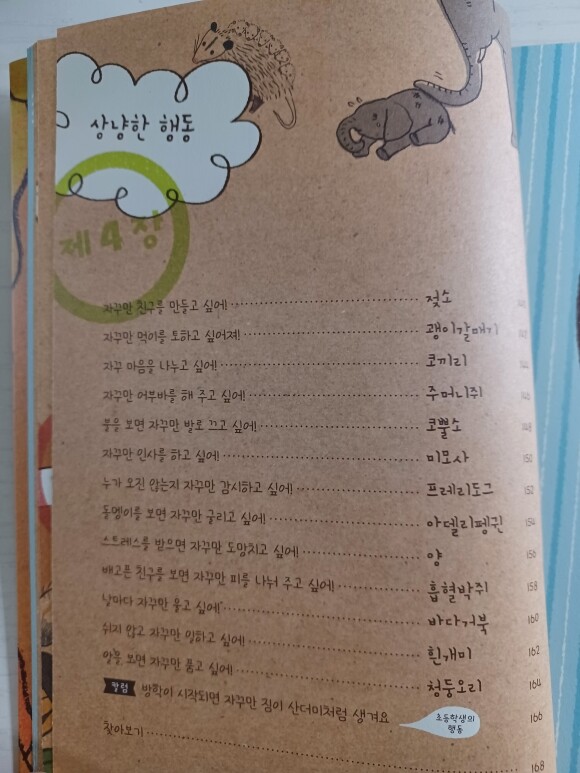 상냥한 행동
제4장
자꾸만 친구를 만들고 싶어! 젖소
자꾸만 먹이를 토하고 싶어져! 괭이갈매기
자꾸 마음을 나누고 싶어! 코끼리 144
자꾸만 어부바를 해 주고 싶어! 주머니쥐 146
불을 보면 자꾸만 발로 끄고 싶어! 코뿔소 148
자꾸만 인사를 하고 싶어! 미모사 150
누가 오진 않는지 자꾸만 감시하고 싶어! 프레리도그 152
돌멩이를 보면 자꾸만 굴리고 싶어! 아델리펭귄 154
스트레스를 받으면 자꾸만 도망치고 싶어! 양 156
배고픈 친구를 보면 자꾸만 피를 나눠 주고 싶어! 흡혈박쥐 158
날마다 자꾸만 울고 싶어! 바다거북 160
쉬지 않고 자꾸만 일하고 싶어! 흰개미 162
알을 보면 자꾸만 품고 싶어! 청둥오리 164
칼럼 방학이 시작되면 자꾸만 짐이 산더미처럼 생겨요 초등학생의 행동 166
찾아보기 168